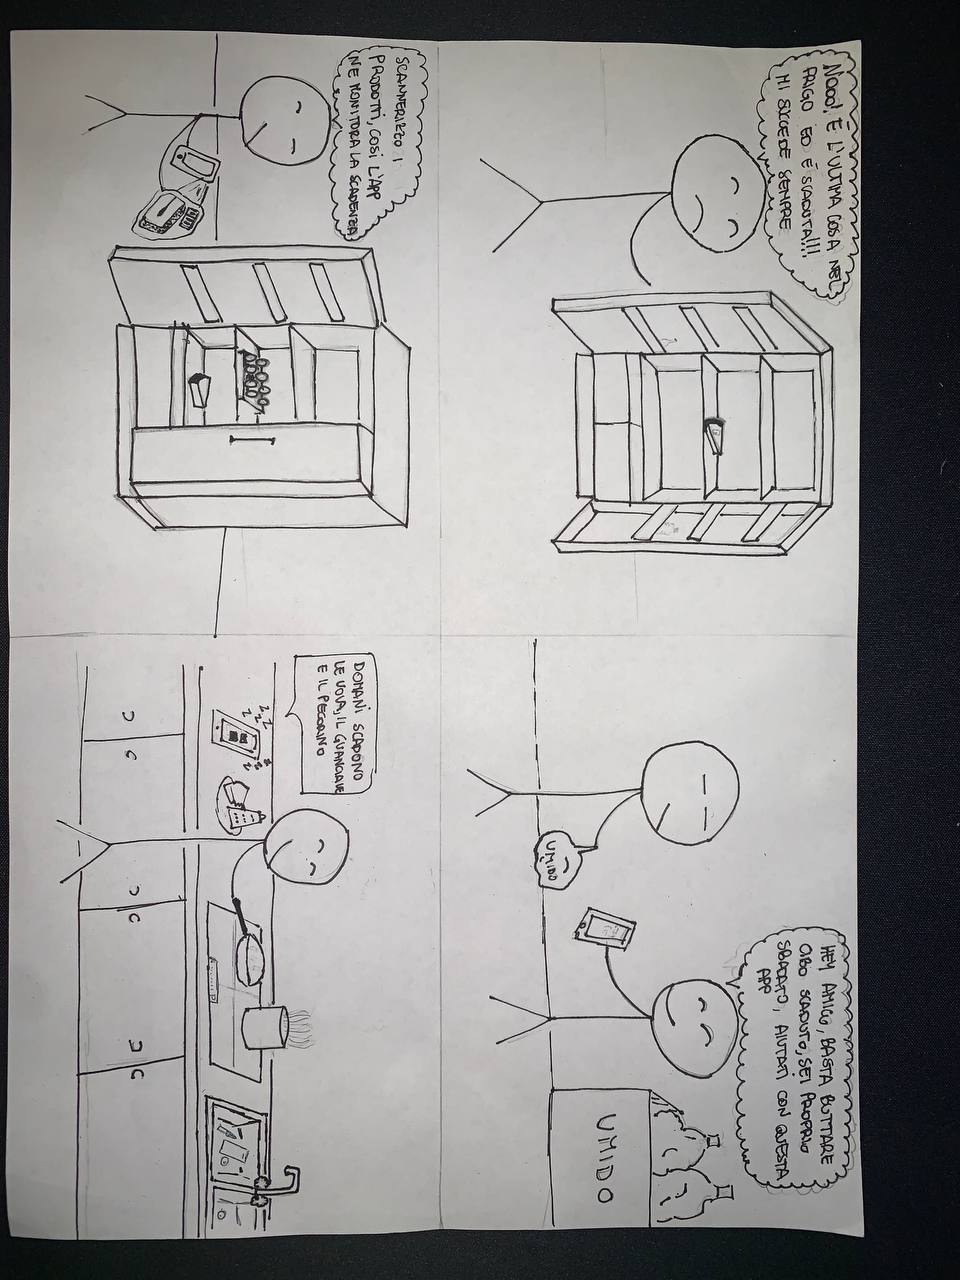 NOOO!, È L'ULTIMA COSA NEL
FRIGO ED È SCADUTA!!!
MI SUCCEDE SEMPRE
HEY AMICO, BASTA BUTTARE
CIBO SCADUTO, SEI PROPRIO
SBADATO, AIUTATI CON QUESTA
APP
UMIDO
UMIDO
SCANNERIZZO I
PRODOTTI, COSI L'APP
NE MONITORA LA SCADENZA
DOMANI SCADONO
LE UOVA, IL GUANCIALE
E IL PECORINO
z z z
z z
z
z
z
z